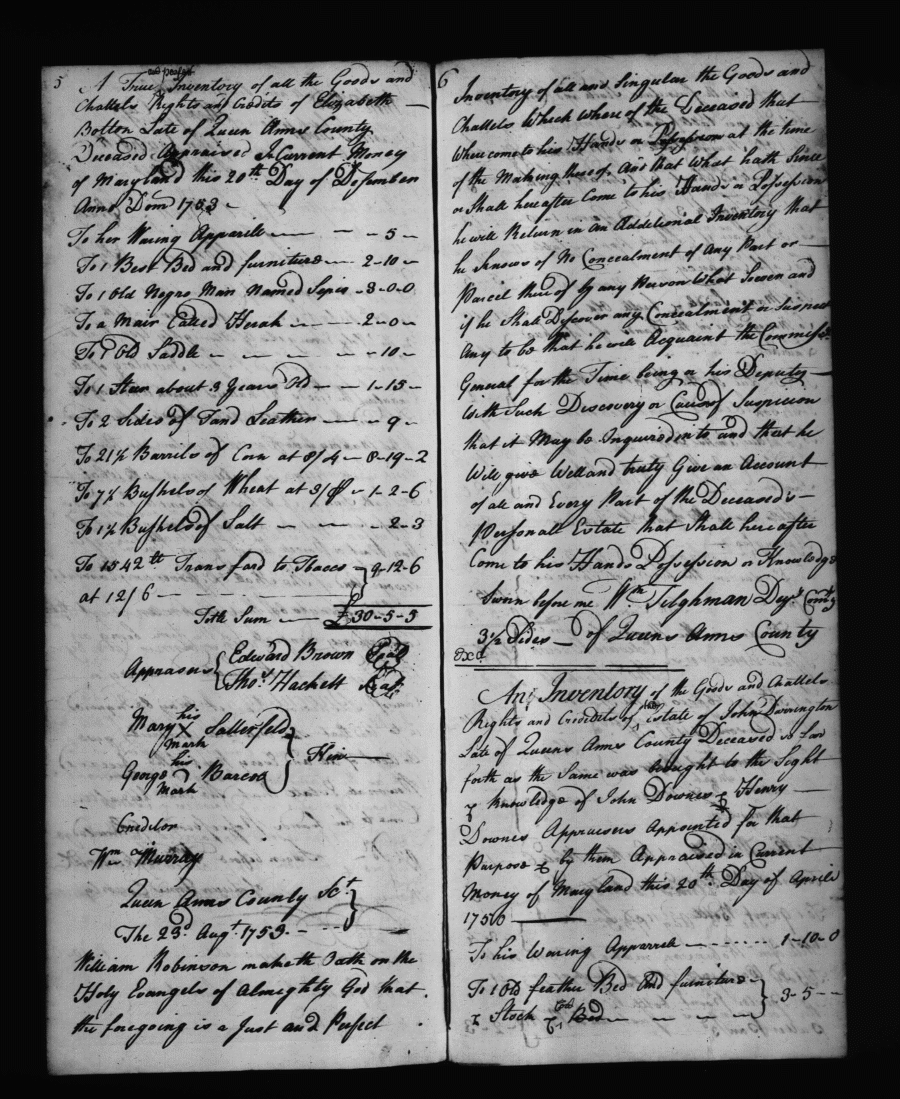 5
and perfect
A True Inventory of all the Goods and
Chattels Rights and Credits of Elizabeth
Bolton Late of Queen Anns County
Deceased Appraised In Current Money
of Maryland this 20th Day of Desember
Anno Dom 1753
To her Waring Apparile — — - 5 -
To 1 Best Bed and furniture — 2-10 -
To 1 Old Negro Man Named - 3-0-0
To a Mair Called — — - 2-0 -
To 1 Old Saddle — — — — - 10 -
To 1 Stear about 3 Years Old — — 1-15 -
To 2 Sides of Tand Leather — — - 9 -
To 21½ Barrils of Corn at 8/4 - 8-19-2
To 7½ Bushels of Wheat at 3/ - 1-2-6
To 1½ Bushels of Salt — — — - 2-3
To 1542 lb Transfard to Tbacco } 9-12-6
at 12/6 — — — —
Totle Sum — £30-5-5
Appraisers { Edward Brown Seal
Thos Hackett Seal
Mary his X mark Satterfeld
George his mark } Kin
Creditor
Wm Murray
Queen Anns County Sct }
The 23d Augt 1753. - - -
William Robinson maketh Oath on the
Holy Evangels of Almighty God that
the foregoing is a Just and Perfect
6
Inventory of all and Singular the Goods and
Chattels Which Where of the Deceased that
Where come to his Hands or Possession at the time
of the Making thereof. And that What hath Since
or Shall hereafter Come to his Hands or Possession
he will Return in an Additional Inventory that
he knows of No Concealment of Any Part or
Parcel thereof by any Person What Soever and
if he Shall Discover any Concealment or Suspect
Any to be that he will Acquaint the Commissy
General for the Time being or his Deputy
With Such Discovery or Cause of Suspicion
that it May be Inquired into and that he
Will give Well and truly Give an Account
of all and Every Part of the Deceaseds
Personall Estate that Shall hereafter
Come to his Hands Possession or Knowledge
Sworn before me Wm Tilghman Depy Comry
3½ Sides — of Queens Anns County
Exd
An Inventory of the Goods and Chattels
Rights and Creddits of the Estate of John Dorrington
Late of Queens Anns County Deceased so far
forth as the Same was brought to the Sight
& knowledge of John Downes & Henry
Downes Appraisers Appointed for that
Purpose & by them Appraised in Current
Money of Maryland this 20th Day of April
1750
To his Waring Apparrel — 1-10-0
To 1 Old feather Bed and furniture } 3-5 -
& Stock Bed — — —